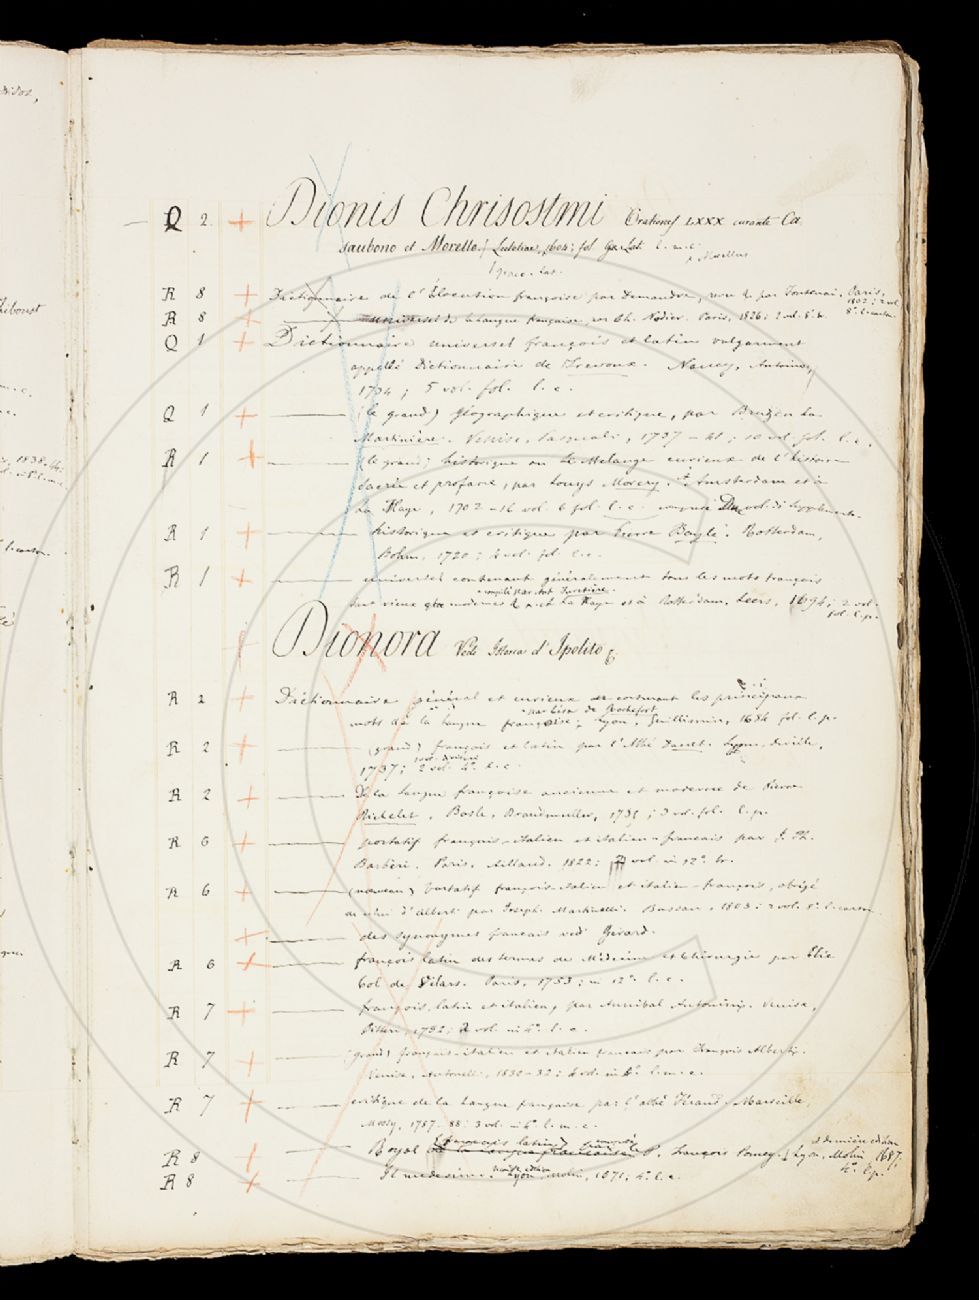 Q 2 + Dionis Chrisostmi Orationes LXXX curante Ca
saubono et Morello Lutetiae, 1604; fol Gr. Lat. l. m. c.
Graec. Lat. Morellus
R 8 + Dictionnaire de l'Élocution françoise par Demandre, revu par Fontenai, Paris, 1802; 2 vol 8°. l. carton.
R 8 + —— universel de la langue française, par Ch. Nodier. Paris, 1826; 2 vol. 8°. b.
Q 1 + Dictionnaire universel françois et latin vulgairement
appellé Dictionnaire de Trevoux. Nancy, Antoine,
1734; 5 vol. fol. l. c.
Q 1 + —— (le grand) géographique et critique, par Bruzen La
Martiniere. Venise, Pasquali, 1737 – 41; 10 vol. fol. l. c.
R 1 + —— (le grand) historique ou Le Melange curieux de l'histoire
Sacrée et profane, par Louys Morery. Amsterdam et à
La Haye, 1702 – 16 vol. 6 fol. l. c. compris Deux vol. di Supplements.
R 1 + —— historique et critique par Pierre Bayle. Rotterdam,
Bohm, 1720; 4 vol. fol. l. c.
R 1 + —— universel contenant généralement tous les mots français
compilé par Ant. Furetière.
tant vieux que modernes &. La Haye et à Rotterdam, Leers, 1694; 2 vol. fol. l. p.
+ Dionora Vede Istoria d'Ipolito
R 2 + Dictionnaire général et curieux contenant les principaux
par César de Rochefort
mots de la langue française; Lyon, Guillimin, 1684 fol. l. p.
R 2 + —— (grand) françois et latin par l'Abbé Danet. Lyon, Deville,
1737; 2 vol. 4°. l. c.
R 2 + —— De la langue françoise ancienne et moderne de Pierre
Richelet, Basle, Brandmuller, 1735; 3 vol. fol. l. p.
R 6 + —— portatif français-italien et italien-français par J. Ph.
Barberi. Paris, Aillaud. 1822; 2 vol. in 12°. br.
R 6 + —— (nouveau) portatif françois-italien et italien-françois, abrégé
de celui d'Alberti par Joseph Martinelli. Bassan, 1803; 2 vol. 8°. l. carton.
+ —— des synonymes francais ved. Girard.
R 6 + —— françois latin des termes de Médecine et Chirurgie par Elie
Col de Vilars. Paris, 1753; in 12°. l. c.
R 7 + —— françois, latin et italien, par Annibal Antonini. Venise,
Pitteri, 1752; 2 vol. in 4°. l. c.
R 7 + —— (grand) français-italien et italien francais par François Alberti.
Venise, Antonelli, 1830 – 32; 4 vol. in 4°. l. m. c.
R 7 + —— critique de la langue française par l'abbé Féraud. Marseille,
Mossy, 1787 – 88; 3 vol. in 4°. l. m. c.
R 8 + —— Royal de la langue françoise P. François Pomey. Lyon, Molin 1687. 4°. l. p.
R 8 + Il medesimo. Lyon, Molin, 1671, 4°. l. c.